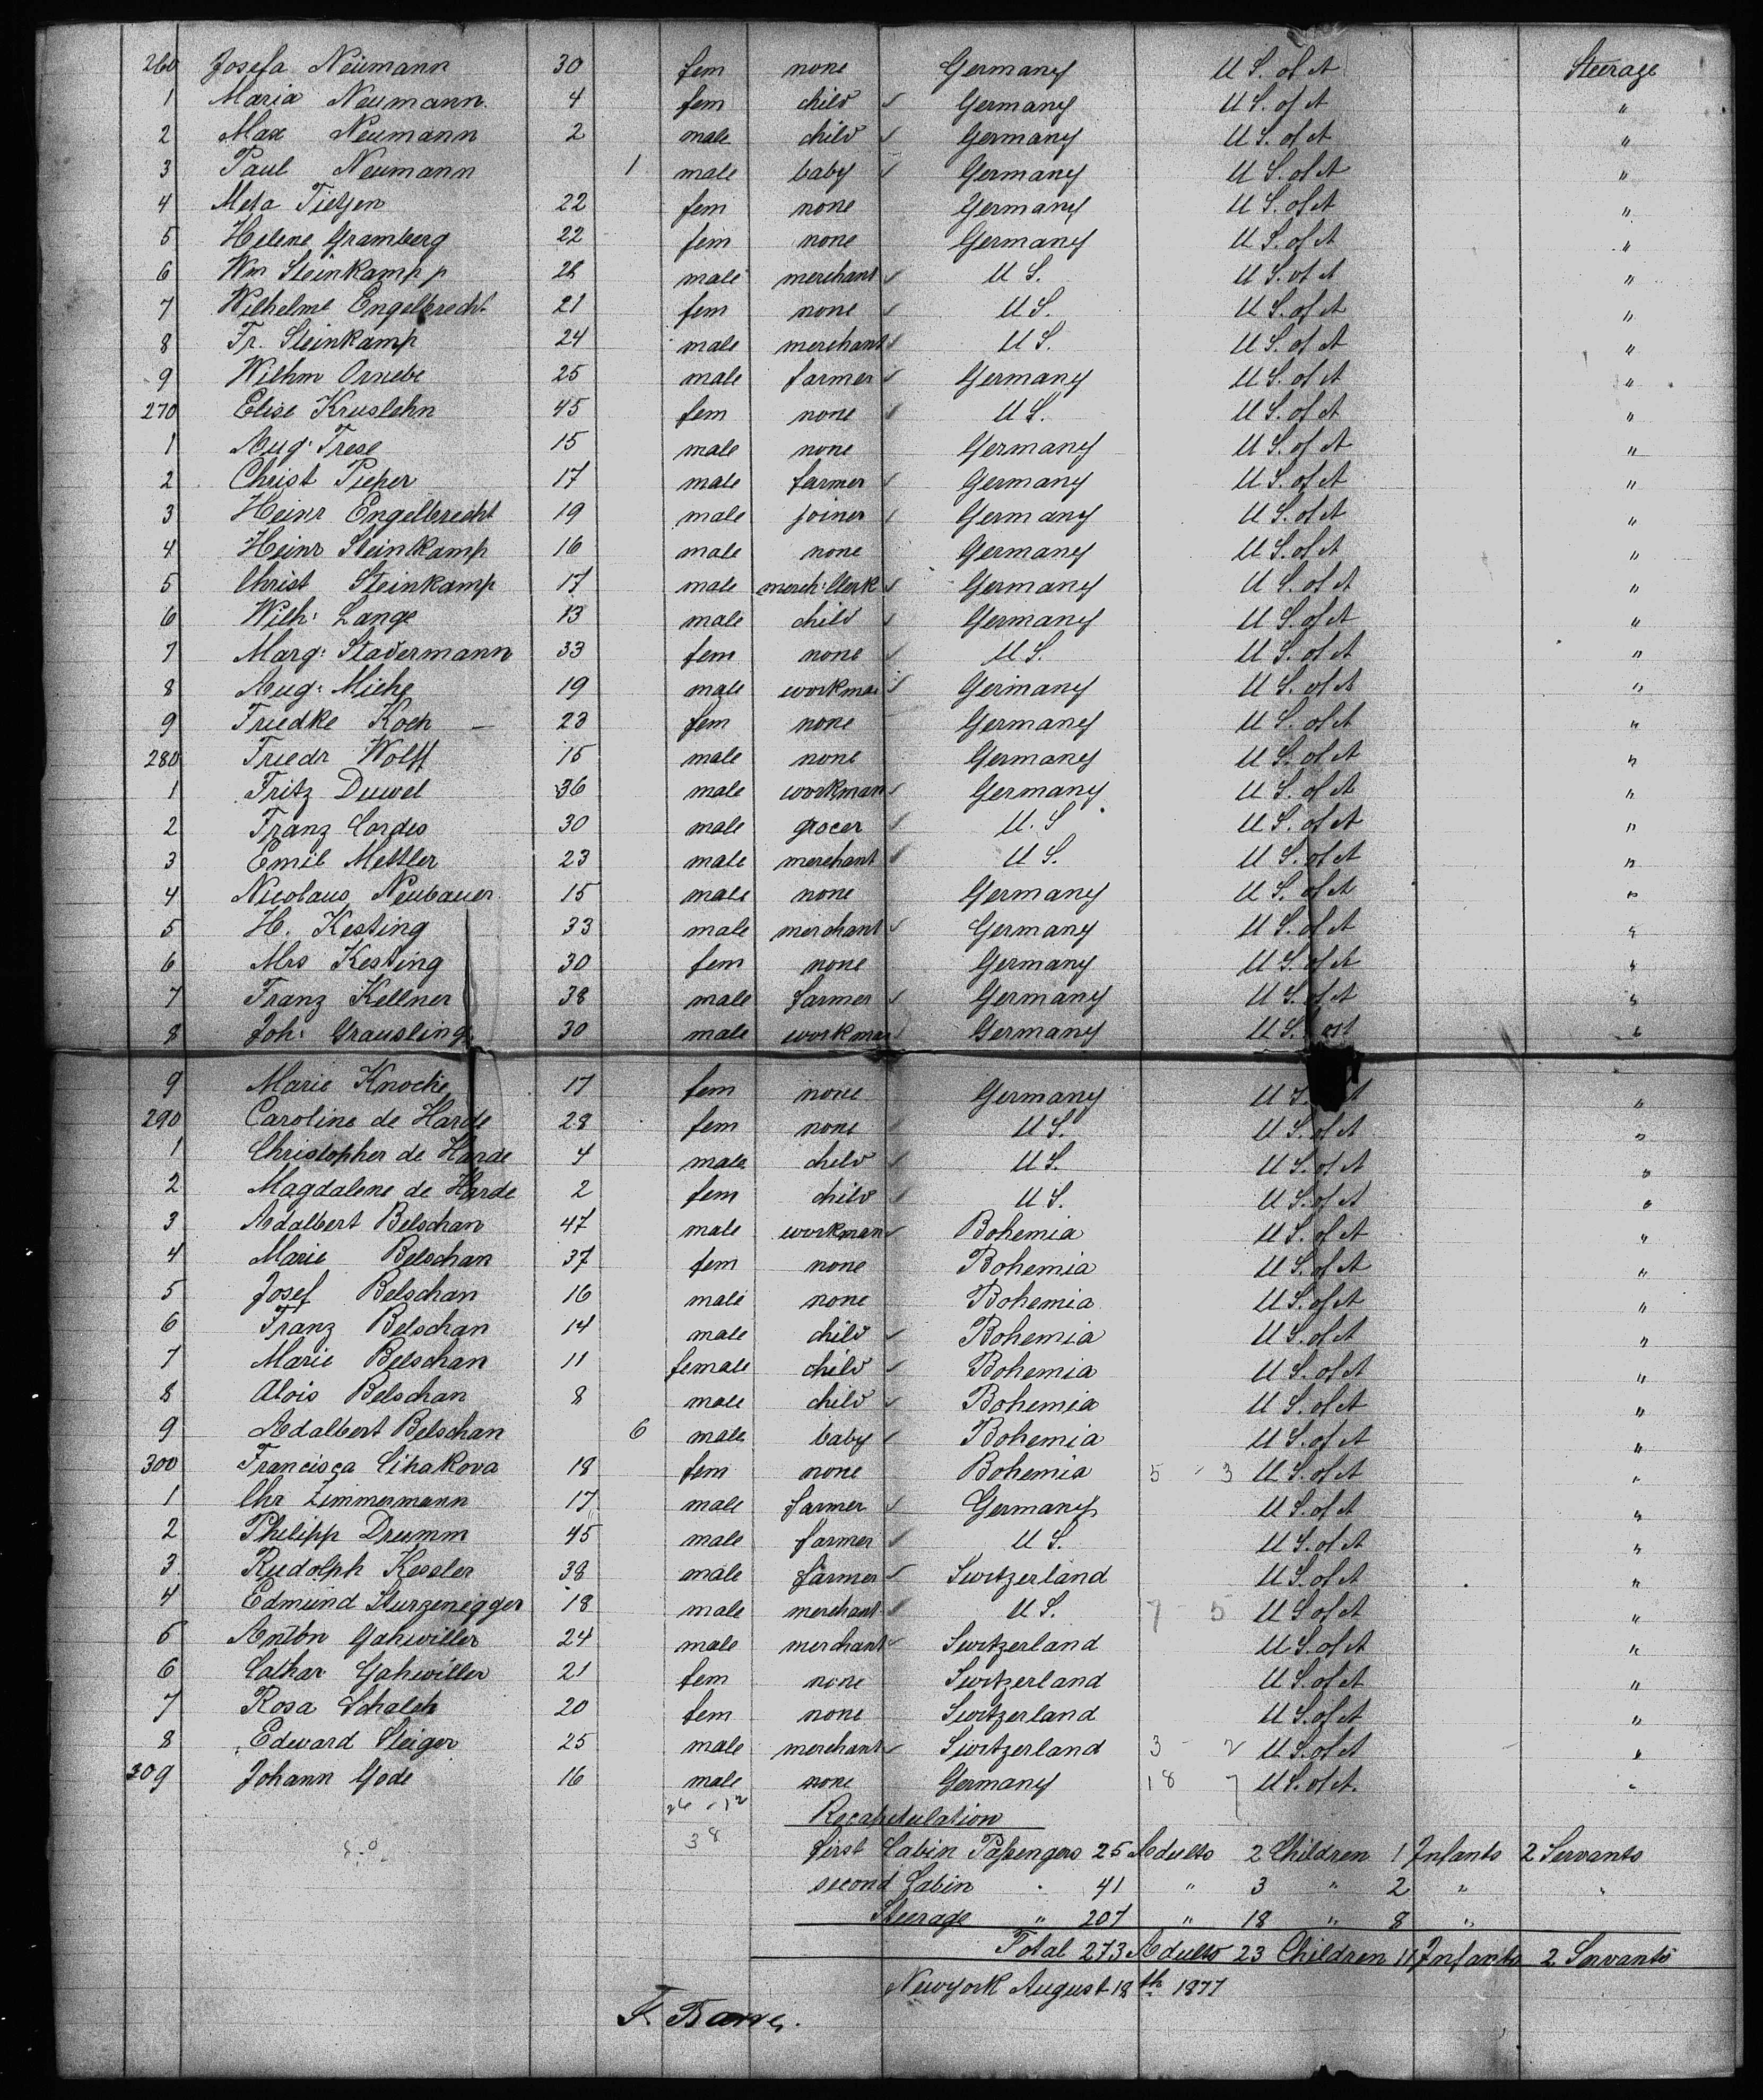 260 Josefa Neumann 30 fem none Germany U S. of A Steerage
1 Maria Neumann 4 fem child Germany U S. of A "
2 Max Neumann 2 male child Germany U S. of A "
3 Paul Neumann 1 male baby Germany U S. of A "
4 Meta Tietjen 22 fem none Germany U S. of A "
5 Helene Gramberg 22 fem none Germany U S. of A "
6 Wm Steinkamp 28 male merchant U S. U S. of A "
7 Wilhelme Engelbrecht 21 fem none U S. U S. of A "
8 Fr. Steinkamp 24 male merchant U S. U S. of A "
9 Wilhm 25 male farmer Germany U S. of A "
270 Elise 45 fem none U S. U S. of A "
1 Aug: Trese 15 male none Germany U S. of A "
2 Christ Pieper 17 male farmer Germany U S. of A "
3 Heinr Engelbrecht 19 male joiner Germany U S. of A "
4 Heinr Steinkamp 16 male none Germany U S. of A "
5 Christ Steinkamp 17 male merch: Clerk Germany U S. of A "
6 Wilh: Lange 13 male child Germany U S. of A "
7 Marg: Stadermann 33 fem none U S. U S. of A "
8 Aug: Miehe 19 male workman Germany U S. of A "
9 Friedke Koch 23 fem none Germany U S. of A "
280 Friedr Wolff 15 male none Germany U S. of A "
1 Fritz Duwel 36 male workman Germany U S. of A "
2 Franz Cordes 30 male grocer U. S U S. of A "
3 Emil Mettler 23 male merchant U S. U S. of A "
4 Nicolaus Neubauer 15 male none Germany U S. of A "
5 H. Kesting 33 male merchant Germany U S. of A "
6 Mrs Kesting 30 fem none Germany U S. of A "
7 Franz Kellner 38 male farmer Germany U S. of A "
8 Joh: Grausling 30 male workman Germany U S. of A "
9 Marie Knoche 17 fem none Germany U S. A "
290 Caroline de Harde 28 fem none U S. U S. of A "
1 Christopher de Harde 4 male child U S. U S. of A "
2 Magdalene de Harde 2 fem child U S. U S. of A "
3 Adalbert Belschan 47 male workman Bohemia U S. of A "
4 Marie Belschan 37 fem none Bohemia U S. of A "
5 Josef Belschan 16 male none Bohemia U S. of A "
6 Franz Belschan 14 male child Bohemia U S. of A "
7 Marie Belschan 11 female child Bohemia U S. of A "
8 Alois Belschan 8 male child Bohemia U S. of A "
9 Adalbert Belschan 6 male baby Bohemia U S. of A "
300 Francisca Cihakova 18 fem none Bohemia 5 - 3 U S. of A "
1 Chr Zimmermann 17 male farmer Germany U S. of A "
2 Philipp Drumm 45 male farmer U S. U S. of A "
3 Rudolph Kessler 38 male farmer Switzerland U S. of A "
4 Edmund Sturzenegger 18 male merchant U S. 7 - 5 U S of A "
5 Anton Gahwiller 24 male merchant Switzerland U S. of A "
6 Cathar Gahwiller 21 fem none Switzerland U S. of A "
7 Rosa Schalch 20 fem none Switzerland U S. of A "
8 Edward Steiger 25 male merchant Switzerland 3 - 2 U S. of A "
309 Johann Gode 16 male none Germany 18 7 U S. of A. "
26 - 12 Recapitulation
38 first Cabin Passengers 25 Adults 2 Children 1 Infants 2 Servants
second Cabin " 41 " 3 " 2 " "
Steerage " 207 " 18 " 8 "
Total 273 Adults 23 Children 11 Infants 2 Servants
Newyork August 18th 1877